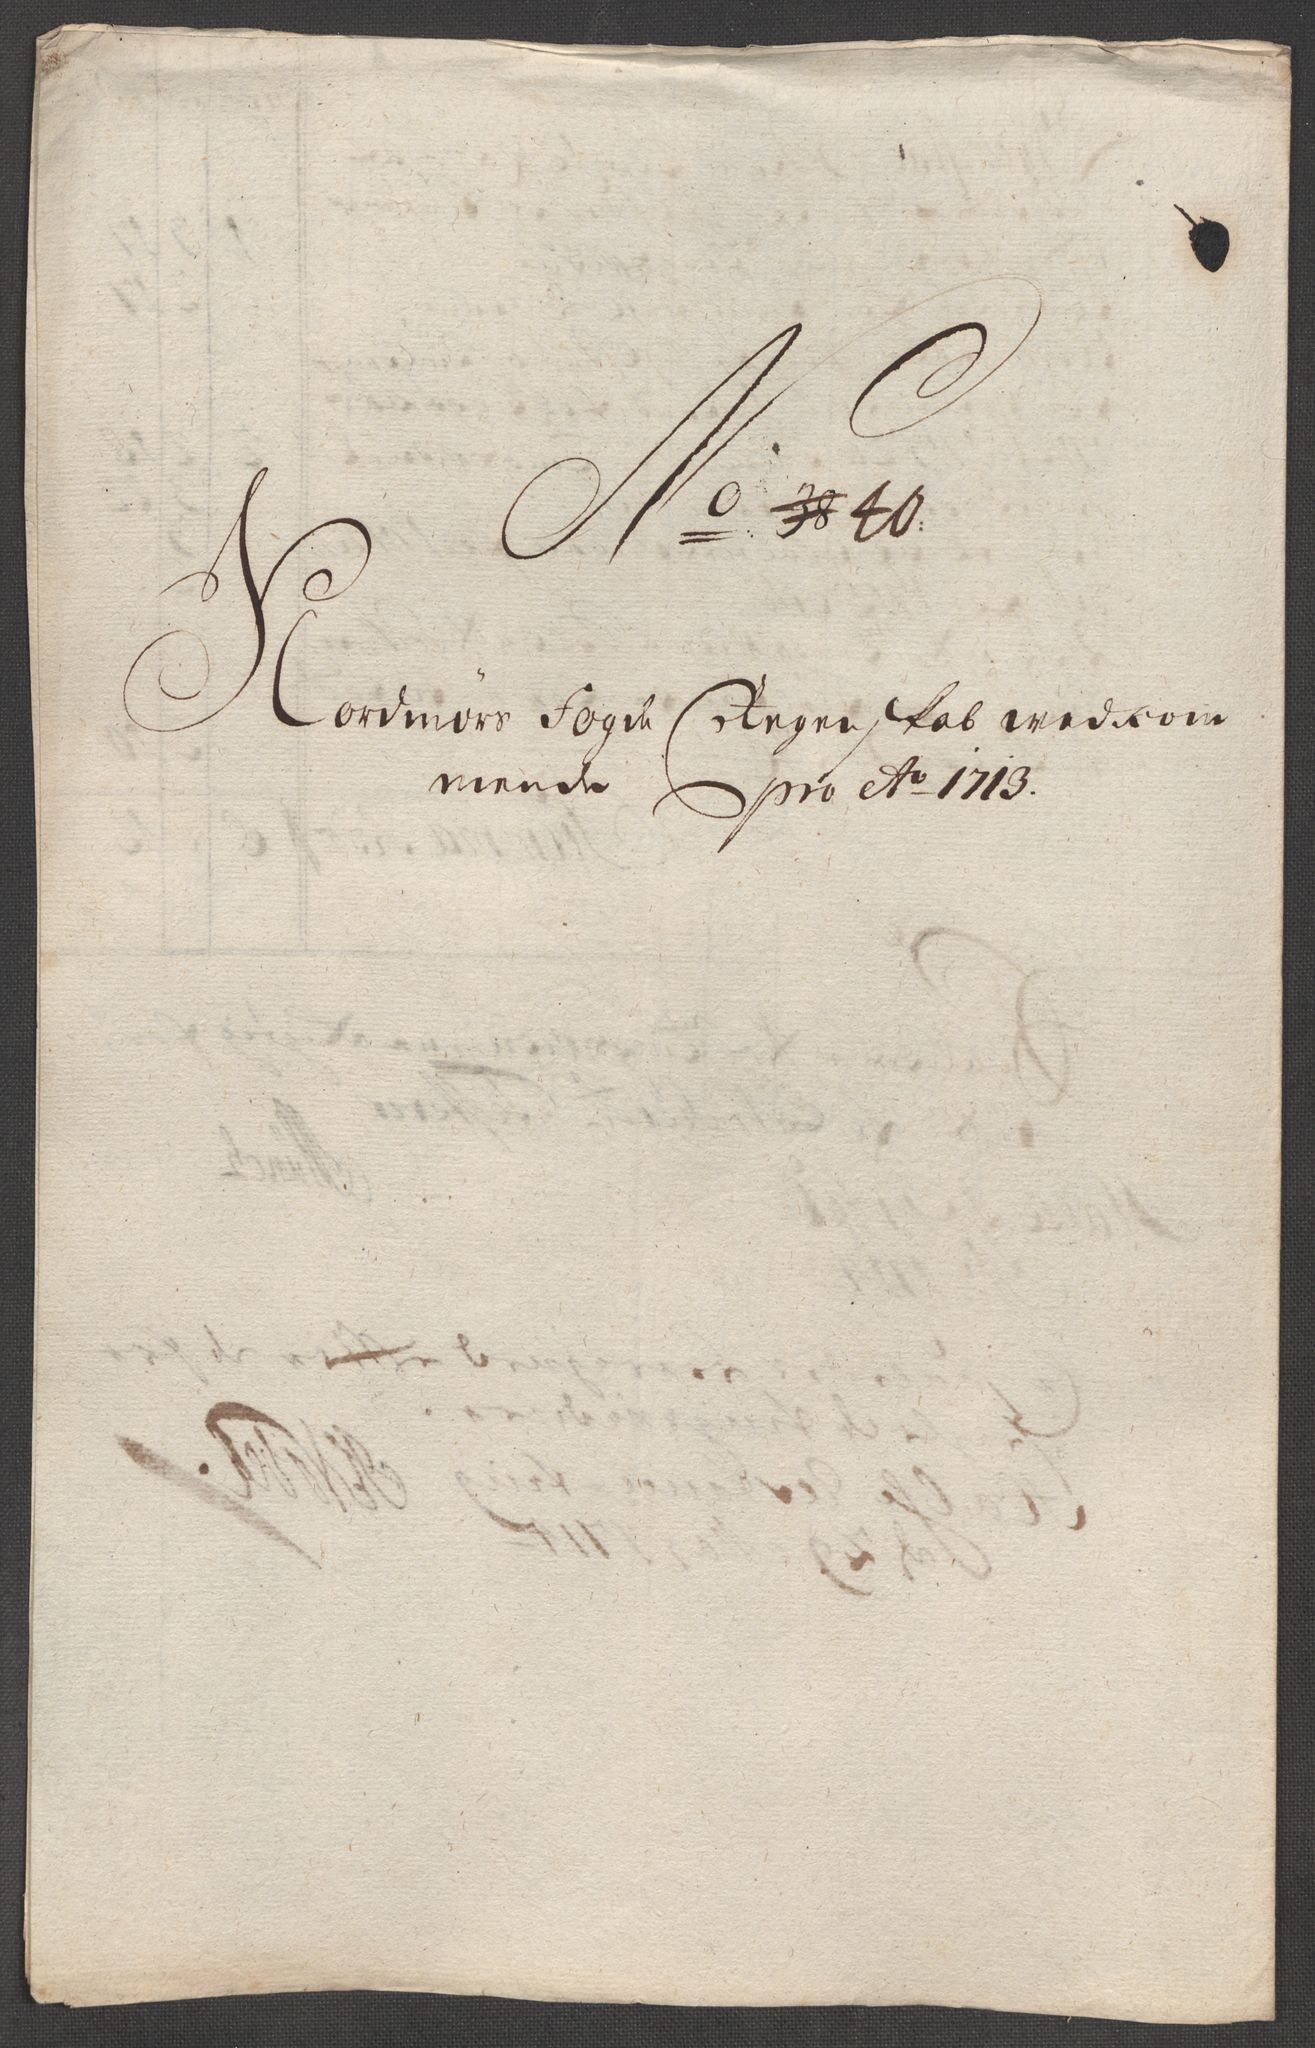 No 38 40.
Nordmørs Fogde Regenskab wedkom
mende pro Ao 1713.